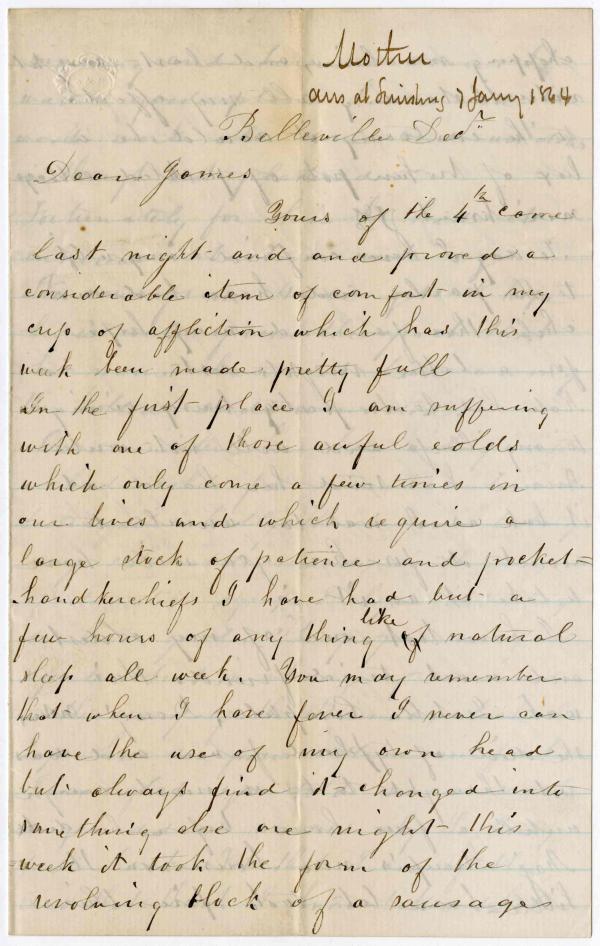 Mother
7 Jany 1864
Belleville Decr
Dear James
Yours of the 4th came
last night and and proved a
considerable item of comfort in my
cup of affliction which has this
week been made pretty full
In the first place I am suffering
with one of those awful colds
which only come a few times in
our lives and which require a
large stock of patience and pocket=
handkerchiefs I have had but a
few hours of any thing like of natural
sleep all week. You may remember
that when I have fever I never can
have the use of my own head
but always find it changed into
something else one night this
week it took the form of the
revolving block of a sausage